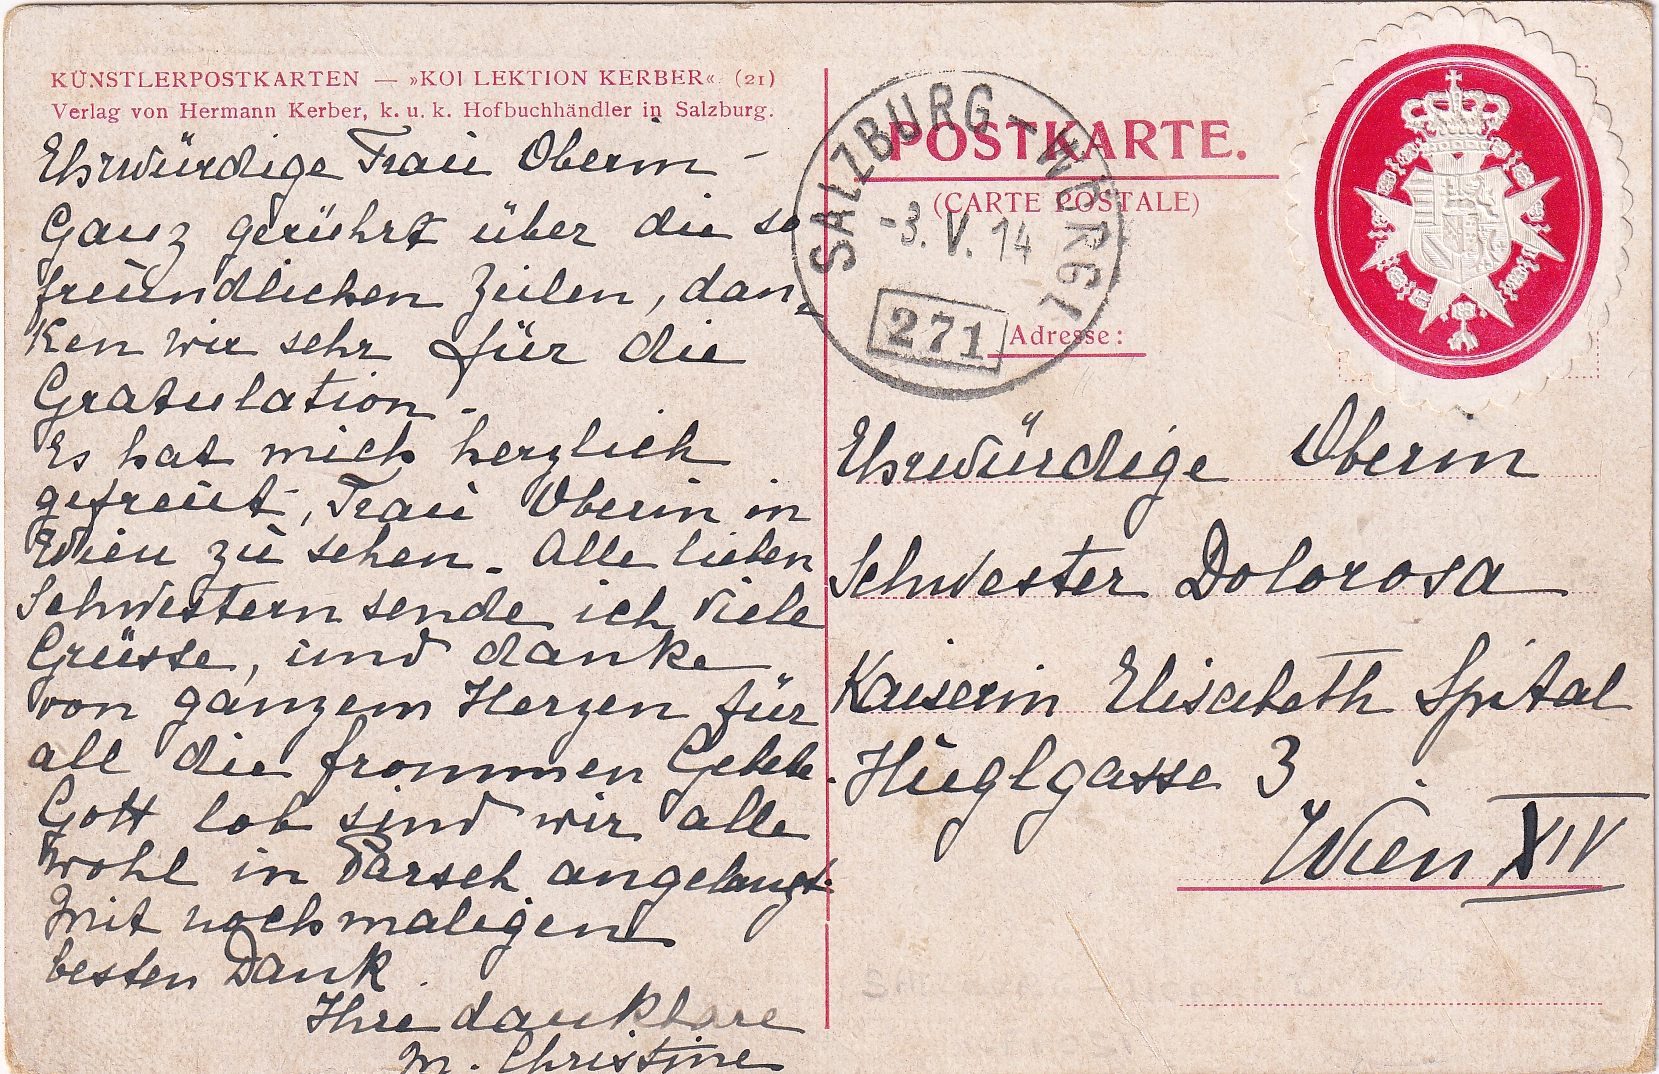 KÜNSTLERPOSTKARTEN — »KOLLEKTION KERBER« (21)
Verlag von Hermann Kerber, k. u. k. Hofbuchhändler in Salzburg.
Ehrwürdige Frau Oberin –
Ganz gerührt über die so
freundlichen Zeilen, dan-
ken wir sehr für die
Gratulation.
Es hat mich herzlich
gefreut, Frau Oberin in
Wien zu sehen. Alle lieben
Schwestern sende ich viele
Grüsse, und danke
von ganzem Herzen für
all die frommen Gebete.
Gott lob sind wir alle
wohl in Parsch angelangt.
Mit nochmaligen
besten Dank
Ihre dankbare
M. Christine
POSTKARTE.
(CARTE POSTALE)
SALZBURG–WÖRGL
-3.V.14
271
Adresse:
Ehrwürdige Oberin
Schwester Dolorosa
Kaiserin Elisabeth Spital
Huglgasse 3
Wien XIV